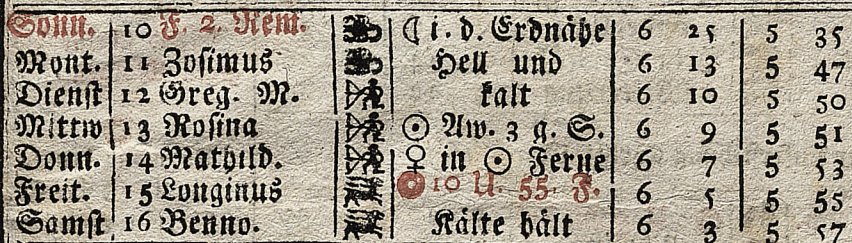 Sonn. 10 F. 2. Rem. ☾ i. d. Erdnähe 6 25 5 35
Mont. 11 Zosimus Hell und 6 13 5 47
Dienst 12 Greg. M. kalt 6 10 5 50
Mittw 13 Rosina ☉ Aw. 3 g. S. 6 9 5 51
Donn. 14 Mathild. ♀ in ☉ Ferne 6 7 5 53
Freit. 15 Longinus 10 U. 55. F. 6 5 5 55
Samst 16 Benno. Kälte hält 6 3 5 57